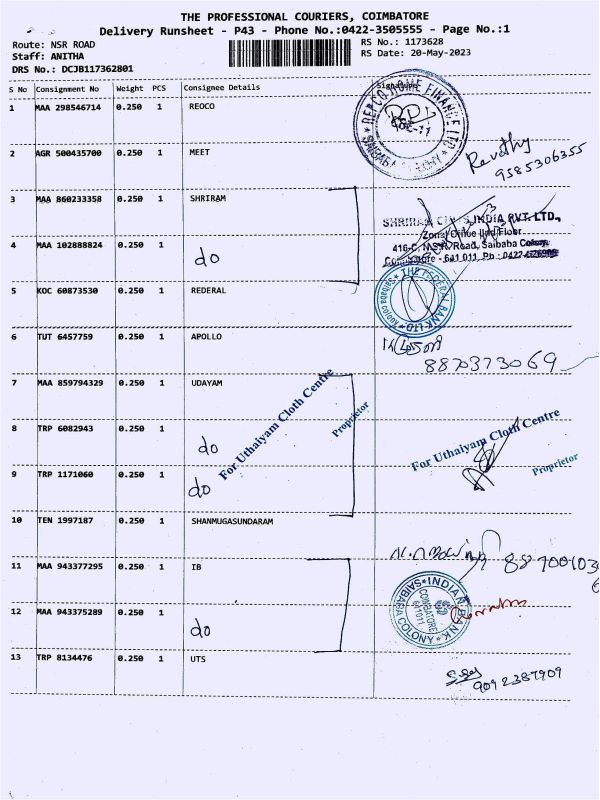 THE PROFESSIONAL COURIERS, COIMBATORE
Delivery Runsheet - P43 - Phone No.:0422-3505555 - Page No.:1
Route: NSR ROAD
Staff: ANITHA
DRS No.: DCJB117362801
RS No.: 1173628
RS Date: 20-May-2023
S No Consignment No Weight PCS Consignee Details Signature
1 MAA 298546714 0.250 1 REOCO
REPCO HOME FINANCE LTD
SAIBABA COLONY
2 AGR 500435700 0.250 1 MEET
Revathy
9585306355
3 MAA 860233358 0.250 1 SHRIRAM
SHRIRAM INDIA PVT. LTD.,
Zonal Office IInd Floor
416-C, N.S.R. Road, Saibaba Colony,
Coimbatore - 641 011, Ph : 0422
4 MAA 102888824 0.250 1 do
5 KOC 60873530 0.250 1 REDERAL
THE FEDERAL BANK LTD.
6 TUT 6457759 0.250 1 APOLLO
8870373069
7 MAA 859794329 0.250 1 UDAYAM
For Uthaiyam Cloth Centre
Proprietor
8 TRP 6082943 0.250 1 do
For Uthaiyam Cloth Centre
Proprietor
9 TRP 1171060 0.250 1 do
10 TEN 1997187 0.250 1 SHANMUGASUNDARAM
11 MAA 943377295 0.250 1 IB
INDIAN BANK
COIMBATORE
641011
SAIBABA COLONY
12 MAA 943375289 0.250 1 do
13 TRP 8134476 0.250 1 UTS
9092387909